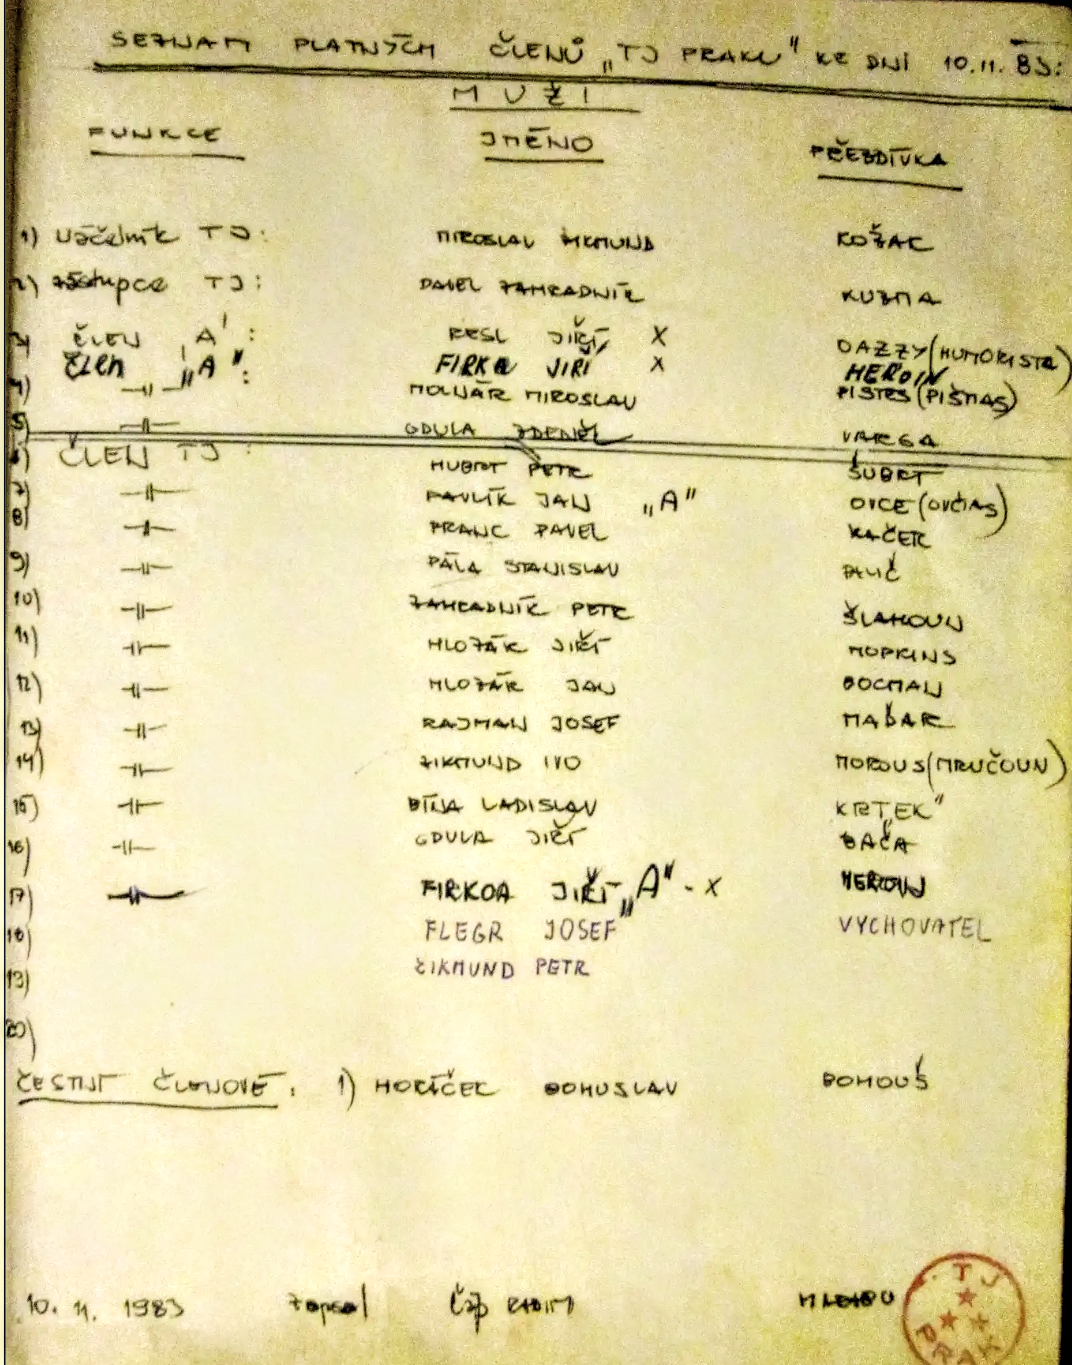 SEZNAM PLATNÝCH ČLENŮ „TJ PRAKU" KE DNI 10.11.83:
MUŽI
FUNKCE JMÉNO PŘEZDÍVKA
1) Náčelník TJ: MIROSLAV ZIKMUND KOŽAC
2) zástupce TJ: PAVEL ZAHRADNÍK KUBMA
3) ČLEN A': RESL JIŘÍ X DAZZY (HUMORISTA)
ČLEN „A": FIRKA JIŘÍ X HEROIN
4) —||— MOLNÁR MIROSLAV PISTES (PIŠTAS)
5) —||— GDULA ZDENĚK VARGA
6) ČLEN TJ: HUBRT PETR ŠUBRT
7) —||— PAVLÍK JAN „A" OVCE (OVČIAS)
8) —||— FRANC PAVEL KAČER
9) —||— PÁLA STANISLAV PALIČ
10) —||— ZAHRADNÍK PETR ŠLAHOUN
11) —||— HLOŽÁK JIŘÍ HOPKINS
12) —||— HLOŽÁK JAN BOCMAN
13) —||— RAJMAN JOSEF MAĎAR
14) —||— ZIKMUND IVO MOROUS (MRUČOUN)
15) —||— BÍNA LADISLAV KRTEK"
16) —||— GDULA JIŘÍ BAČA
17) —||— FIRKOA JIŘÍ „A" - X HEROIN
18) FLEGR JOSEF VYCHOVATEL
19) ZIKMUND PETR
20)
ČESTNÍ ČLENOVÉ: 1) HOŘÍČEK BOHUSLAV BOHOUŠ
10. 11. 1983 zapsal Čáp RADIM
TJ PRAK